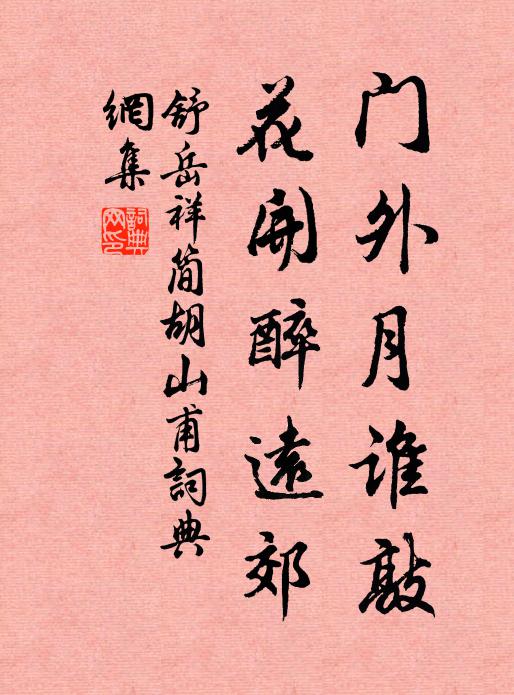 门外月谁敲
花开醉遠郊
舒岳祥简胡山甫詞典
網集
詞典网印